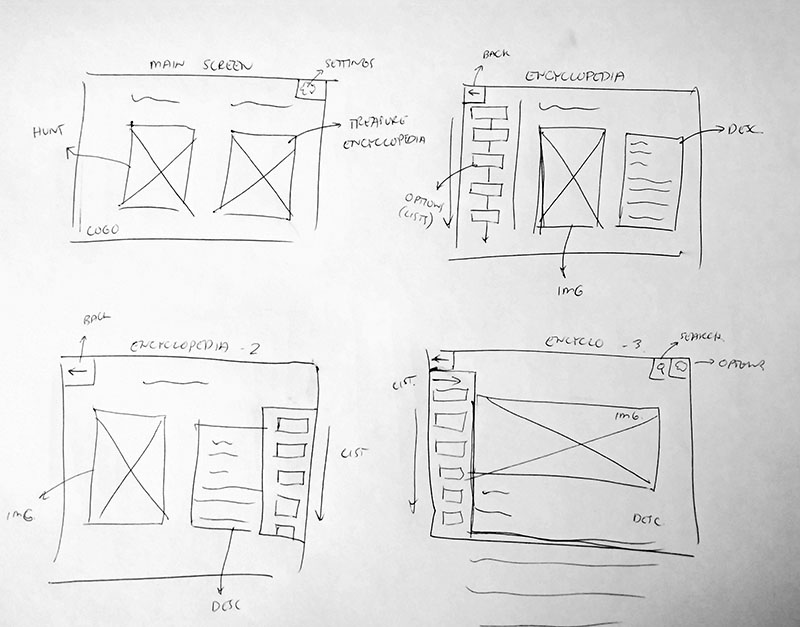 MAIN SCREEN
SETTINGS
HUNT
TREASURE
ENCYCLOPEDIA
LOGO
BACK
ENCYCLOPEDIA
DESC
OPTIONS
(LISTS)
IMG
BACK
ENCYCLOPEDIA - 2
LIST
IMG
DESC
ENCYCLO - 3
SEARCH
OPTIONS
LIST
IMG
DESC